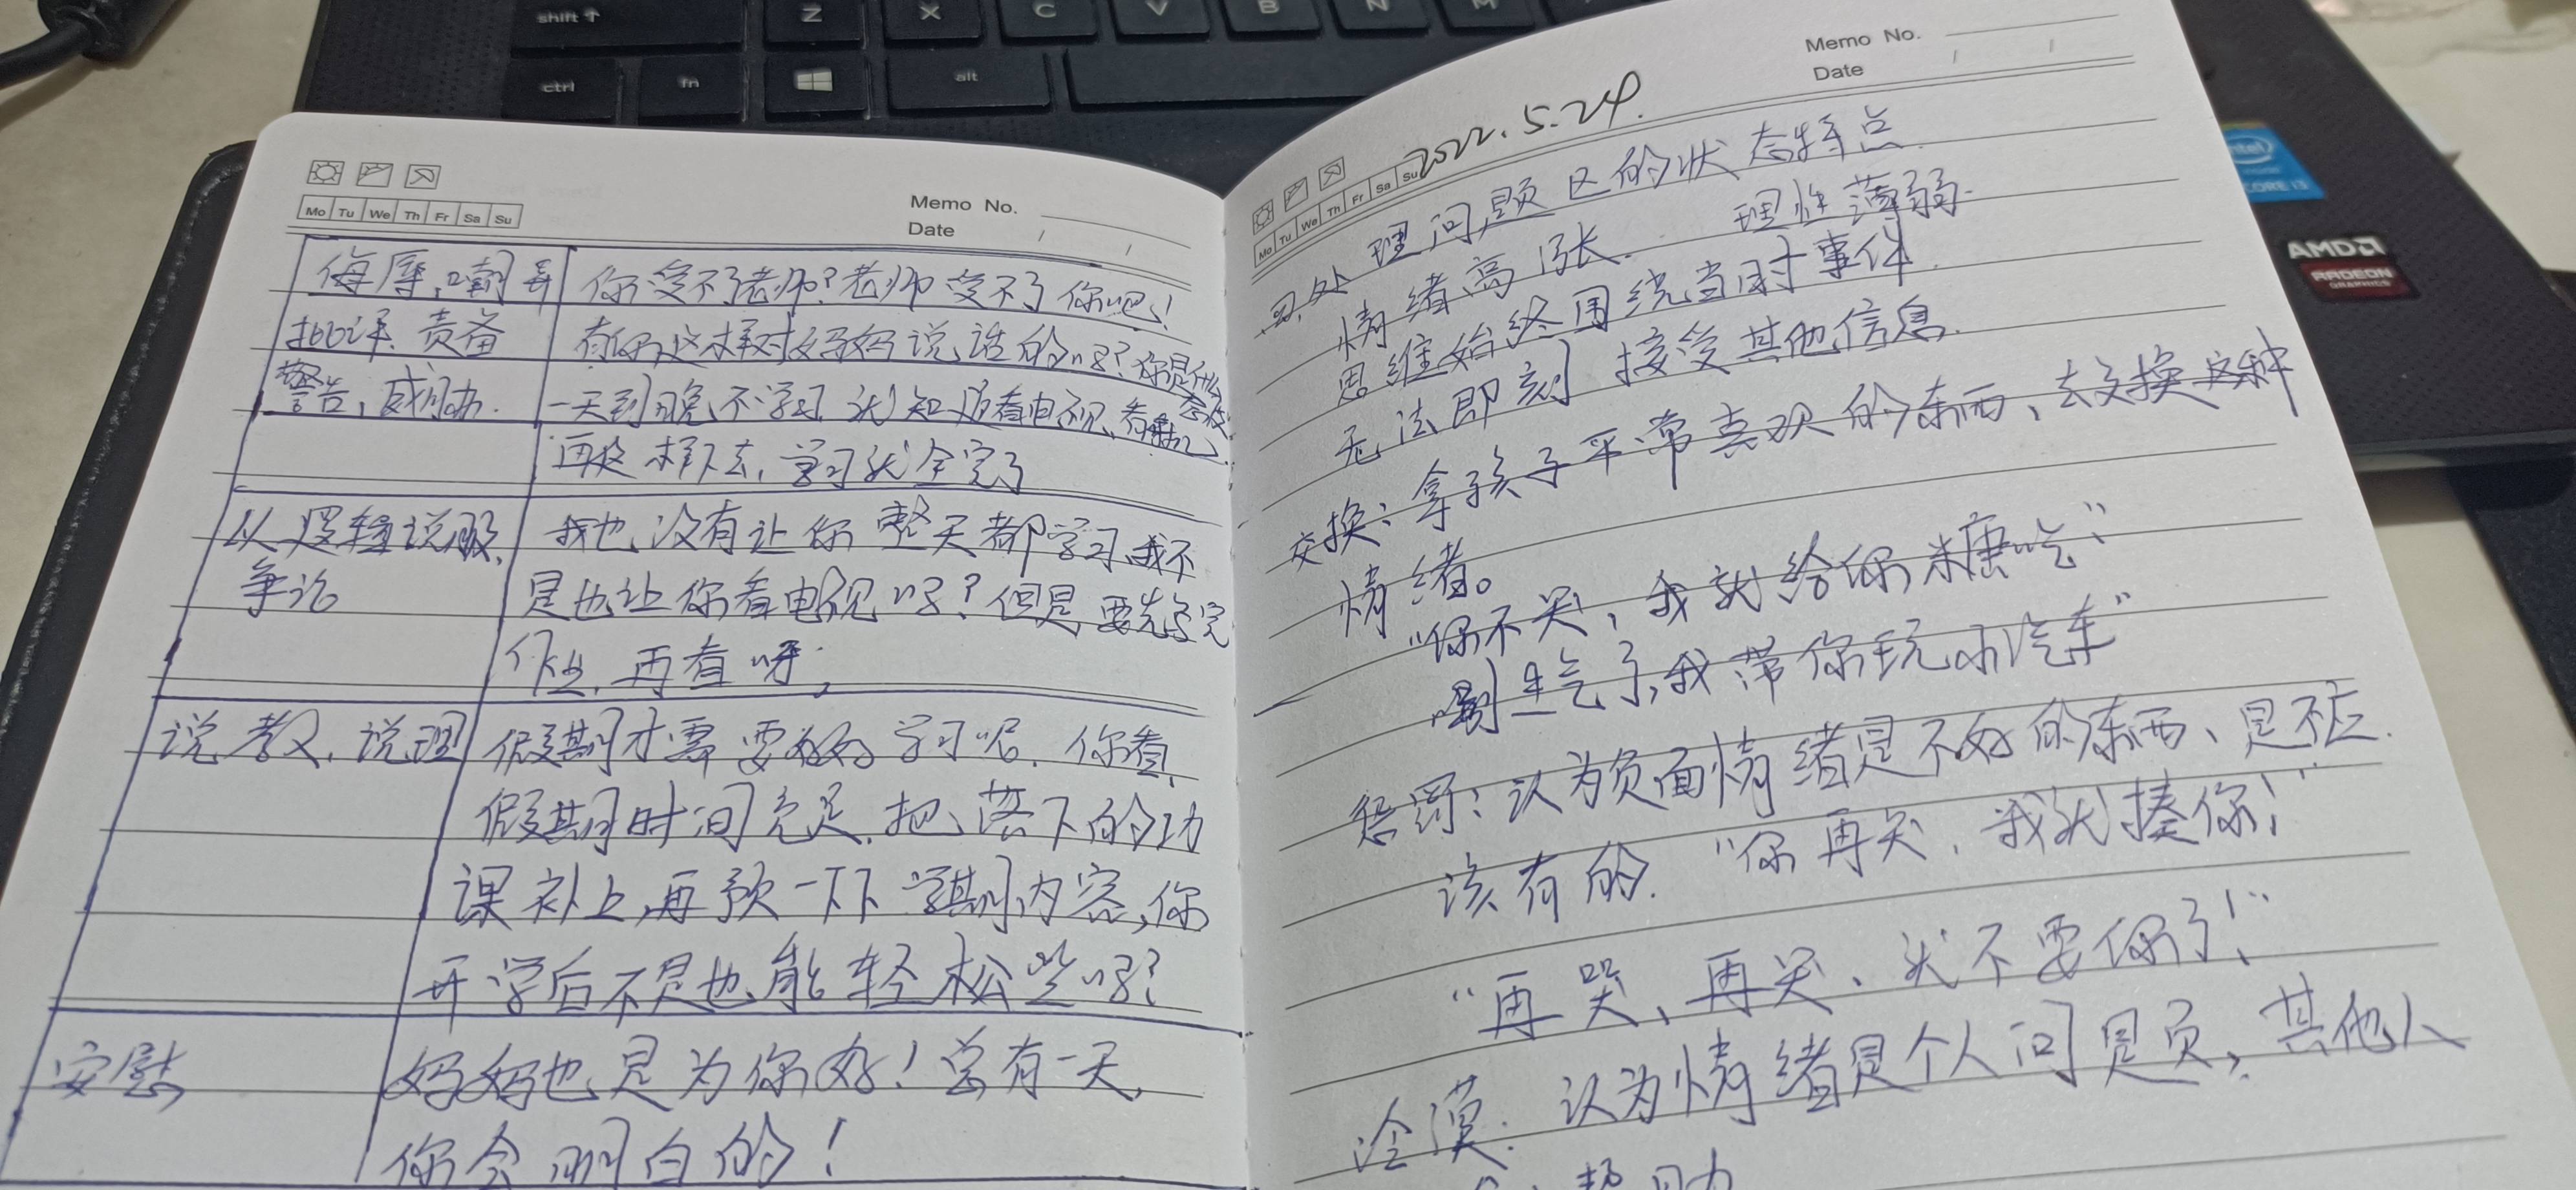 shift ↑ Z X C V B N M
ctrl fn alt
Mo Tu We Th Fr Sa Su
Memo No.
Date / /
侮辱、嘲弄 你受不了老师?老师受不了你吧!
批评、责备 有你这样对妈妈说话的吗?你是什么态度
警告,威胁. 一天到晚不学习,就知道看电视、看手机
再这样下去,学习就全完了
从逻辑说服, 我也没有让你整天都学习,我不
争论 是也让你看电视吗?但是,要先写完
作业,再看呀;
说教,说理 假期才需要好好学习呢.你看,
假期时间充足,把落下的功
课补上,再预一下下学期内容,你
开学后不是也能轻松些吗?
安慰 妈妈也是为你好!总有一天,
你会明白的!
Memo No.
Date / /
Mo Tu We Th Fr Sa Su
2022.5.24.
处理问题区的状态特点
情绪高涨. 理性薄弱.
思维始终围绕当时事件.
无法即刻接受其他信息.
交换:拿孩子平常喜欢的东西、去交换这种
情绪。
“你不哭,我就给你糖吃”
别生气了,我带你玩小汽车”
惩罚:认为负面情绪是不好的东西、是不应
该有的.“你再哭,我就揍你!”
“再哭、再哭、我不要你了!”
冷漠:认为情绪是个人问题,其他人
帮助
intel
CORE i3
AMD
RADEON
GRAPHICS